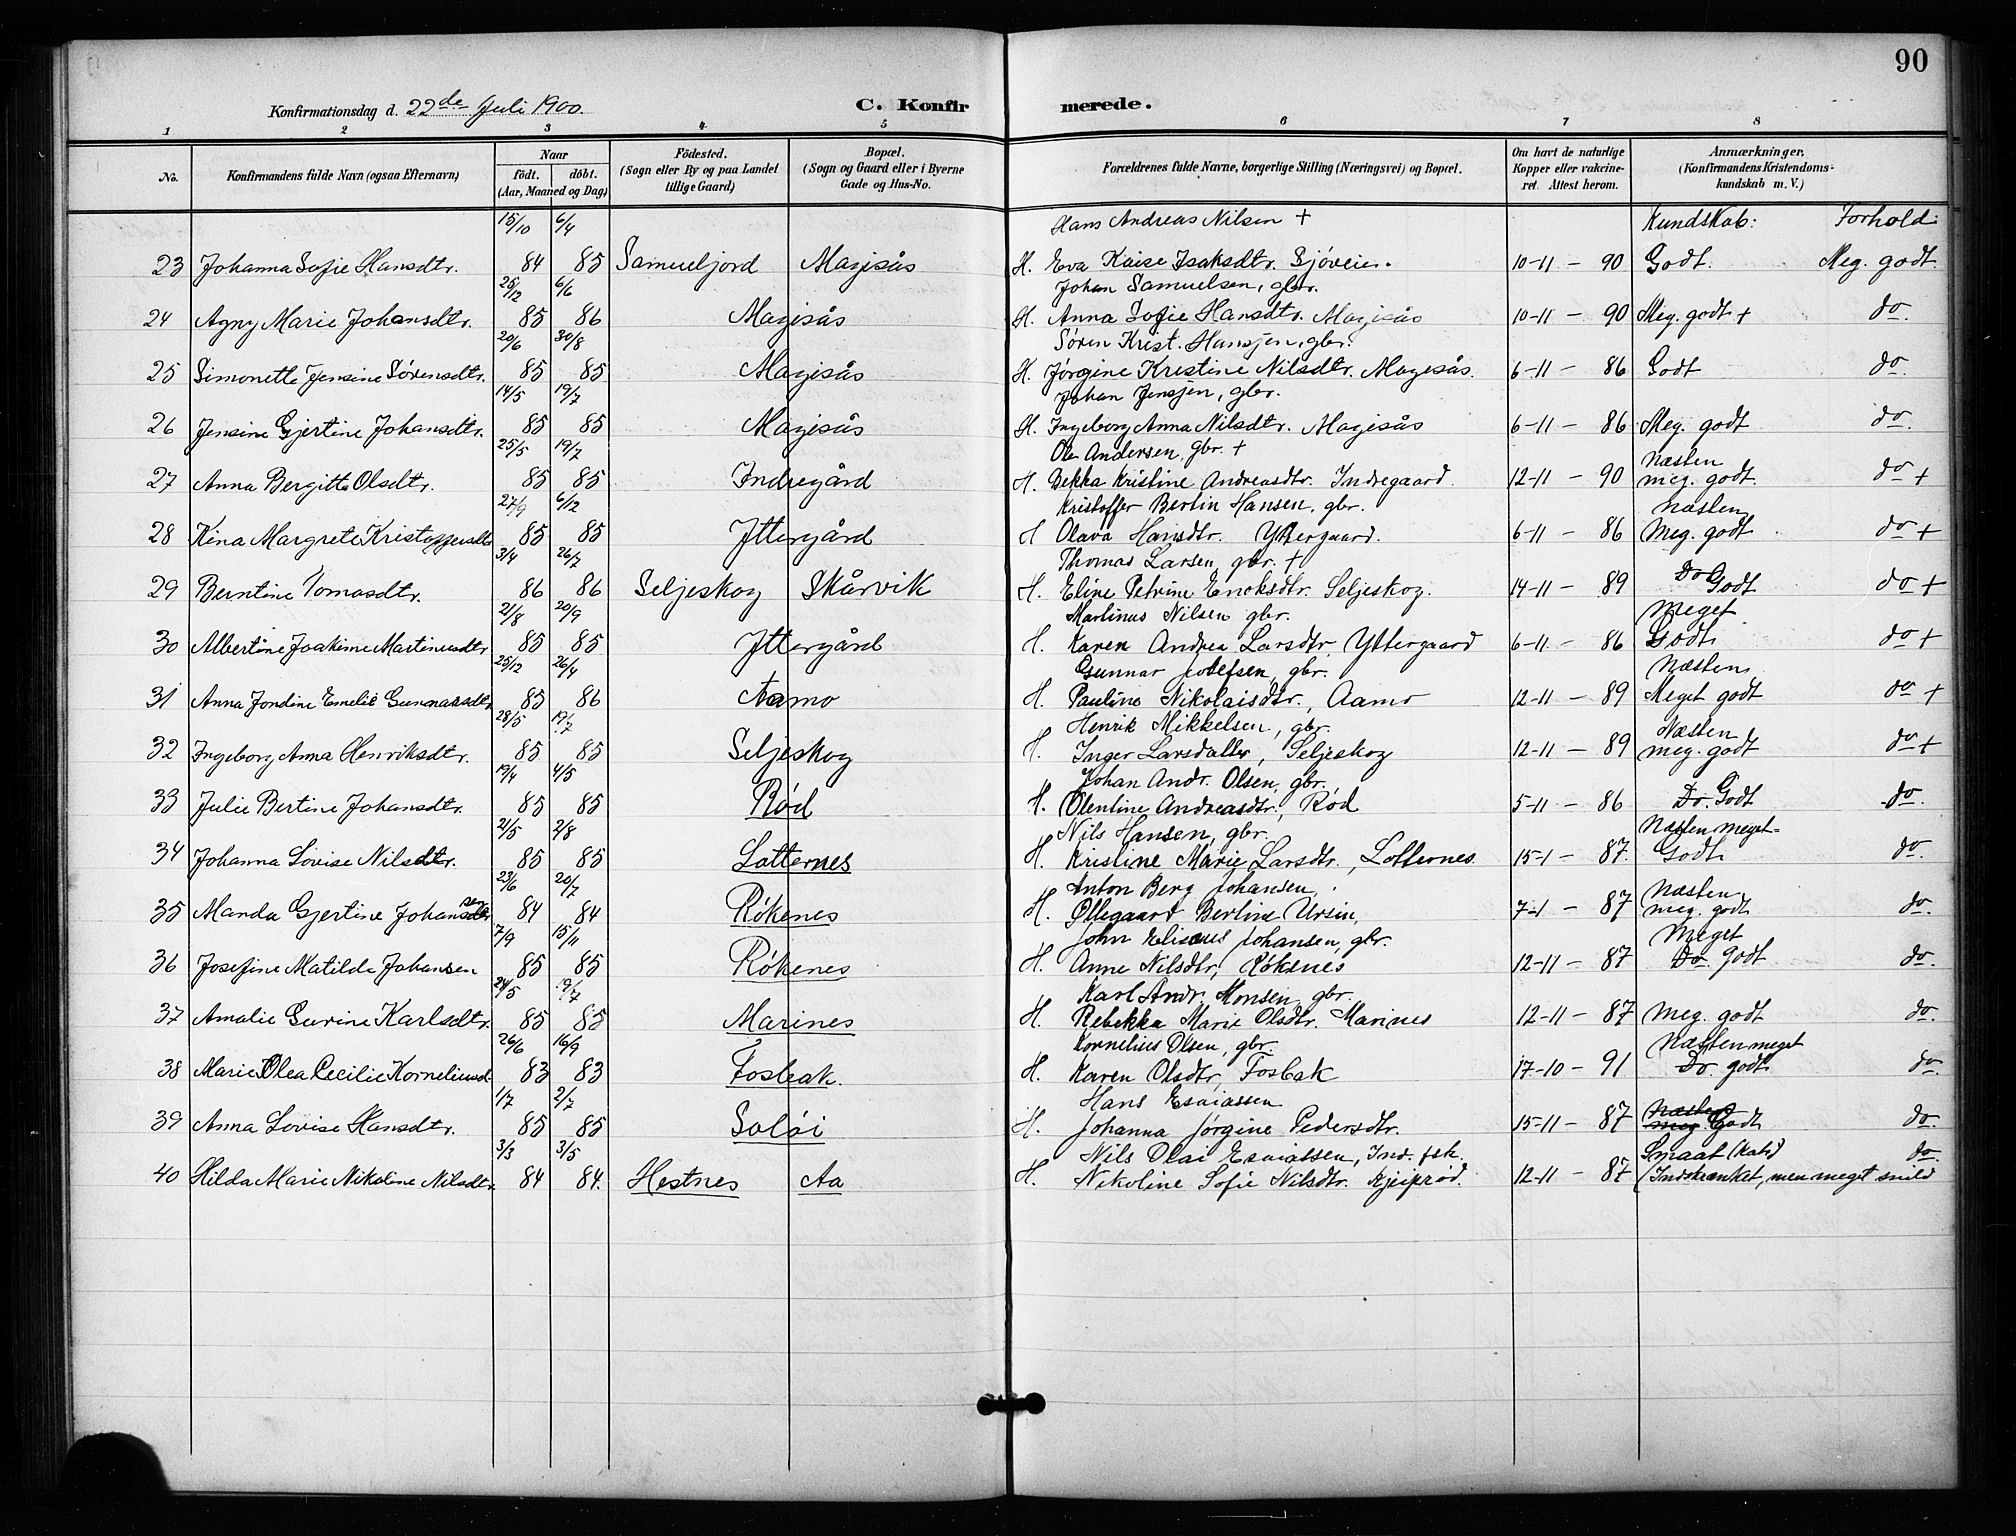 90
Konfirmationsdag d. 22de Juli 1900. C. Konfir merede.
1 2 3 4 5 6 7 8
No. Konfirmandens fulde Navn (ogsaa Efternavn) Naar födt. döbt. (Aar, Maaned og Dag) Födested. (Sogn eller By og paa Landet tillige Gaard) Bopæl. (Sogn og Gaard eller i Byerne Gade og Hus-No. Forældrenes fulde Navne, borgerlige Stilling (Næringsvei) og Bopæl. Om havt de naturlige Kopper eller vakcineret. Attest herom. Anmærkninger. (Konfirmandens Kristendomskundskab m. V.)
15/10 6/4 Hans Andreas Nilsen + Kundskab: Forhold:
23 Johanna Sofie Hansdtr. 84 85 Samueljord Magisås H. Eva Kaise Isaksdtr. Sjöveien. 10-11 - 90 Godt. Meg. godt.
25/12 6/6 Johan Samuelsen, gbr.
24 Agny Marie Johansdtr. 85 86 Magisås H. Anna Sofie Hansdtr. Magisås 10-11 - 90 Meg. godt + do.
20/6 30/8 Søren Krist. Hansjen, gbr.
25 Simonette Jensine Sørensdtr. 85 85 Magisås H. Jørgine Kristine Nilsdtr. Magisås. 6-11 - 86 Godt do.
14/5 19/7 Johan Jensjen, gbr.
26 Jensine Gjertine Johansdtr. 85 85 Magisås H. Ingeborg Anna Nilsdtr. Magisås 6-11 - 86 Meg. godt do.
25/5 19/7 Ole Andersen, gbr. +
27 Anna Bergitte Olsdtr. 85 85 Indregård H. Bekka Kristine Andreasdtr. Indregaard. 12-11 - 90 Næsten meg. godt. do +
27/9 6/12 Kristoffer Bertin Hansen, gbr.
28 Kina Margrete Kristoffersdtr 85 85 Yttergård H Olava Hansdtr. Yttergaard. 6-11 - 86 Næsten Meg. godt do +
3/4 26/7 Thomas Larsen, gbr. +
29 Berntine Tomasdtr. 86 86 Seljeskog Skårvik H. Eline Petrine Enoksdtr. Seljeskog. 14-11 - 89 Do Godt do +
21/8 20/9 Martinus Nilsen gbr.
30 Albertine Joakime Martinusdtr 85 85 Yttergård H. Karen Andrea Larsdtr. Yttergaard 6-11 - 86 Meget Godt do +
25/12 26/4 Gunnar Josefsen, gbr.
31 Anna Jondine Emelie Gunnarsdtr 85 86 Aamo H. Pauline Nikolaisdtr., Aamo 12-11 - 89 Næsten Meget godt do +
28/5 19/7 Henrik Mikkelsen, gbr.
32 Ingeborg Anna Henriksdtr. 85 85 Seljeskog H. Inger Larsdatter, Seljeskog 12-11 - 89 Næsten meg. godt do +
19/4 4/5 Johan Andr. Olsen, gbr.
33 Julie Bertine Johansdtr. 85 85 Rød H. Olentine Andreasdtr., Rød 5-11 - 86 Do. Godt do.
21/5 2/8 Nils Hansen, gbr.
34 Johanna Lovise Nilsdtr. 85 85 Lotternes H. Kristine Marie Larsdtr., Lotternes. 15-1 - 87. Næsten meget Godt do.
23/6 20/7 Anton Berg Johansen,
35 Manda Gjertine Johansen 84 84 Røkenes H. Ollegaard Bertine Ursin, 7-1 - 87 Næsten meg. godt do.
7/9 15/11 John Eliseus Johansen, gbr.
36 Josefine Matilde Johansen 85 85 Røkenes H. Anne Nilsdtr, Røkenes 12-11 - 87 Meget Do godt do.
24/5 19/7 Karl Andr. Monsen, gbr.
37 Amalie Gurine Karlsdtr. 85 85 Marines H. Rebekka Marie Olsdtr. Marines 12-11 - 87 Meg. godt do.
26/6 16/9 Kornelius Olsen, gbr.
38 Marie Olea Cecilie Korneliusd. 83 83 Fosbak. H. Karen Olsdtr, Fosbak 17-10 - 91 Næsten meget Do. godt do.
1/7 2/7 Hans Esaiassen
39 Anna Lovise Hansdtr. 85 85 Soløi H. Johanna Jørgine Pedersdtr. 15-11 - 87 Næsten meg. Godt do.
3/3 3/5 Nils Olai Esaiassen, Ind. fsk.
40 Hilda Marie Nikoline Nilsdtr. 84 84. Hestnes Aa H. Nikoline Sofie Nilsdtr. 12-11 - 87 Smaat do. (Indskrænket, men meget snild